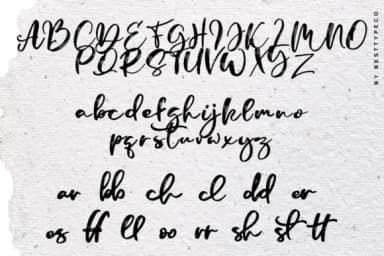 ABCDEFGHIJKLMNO
PQRSTUVWXYZ
abcdefghijklmno
pqrstuvwxyz
ar bb ch cl dd er
es ff ll oo rr sh st tt
BY BESTTYPECO